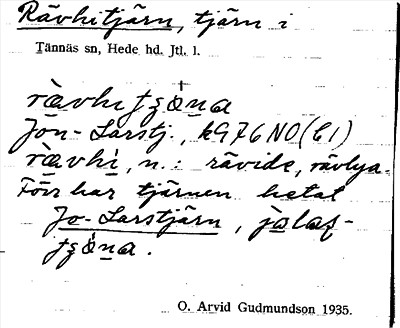 Rävhitjärn, tjärn i
Tännäs sn, Hede hd. Jtl. l.
Jon-Larstj., k976NO(C1)
rävhi, n.: rävide, rävlya.
Förr har tjärnen hetat
Jo-Larstjärn,
O. Arvid Gudmundson 1935.